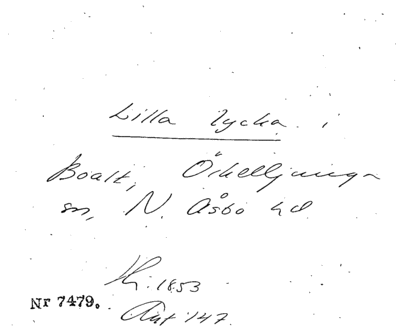 Lilla Lycka i
Boalt, Örkelljunga
sn, N. Åsbo hd
Kr. 1853
Nr 7479.
Ant 147